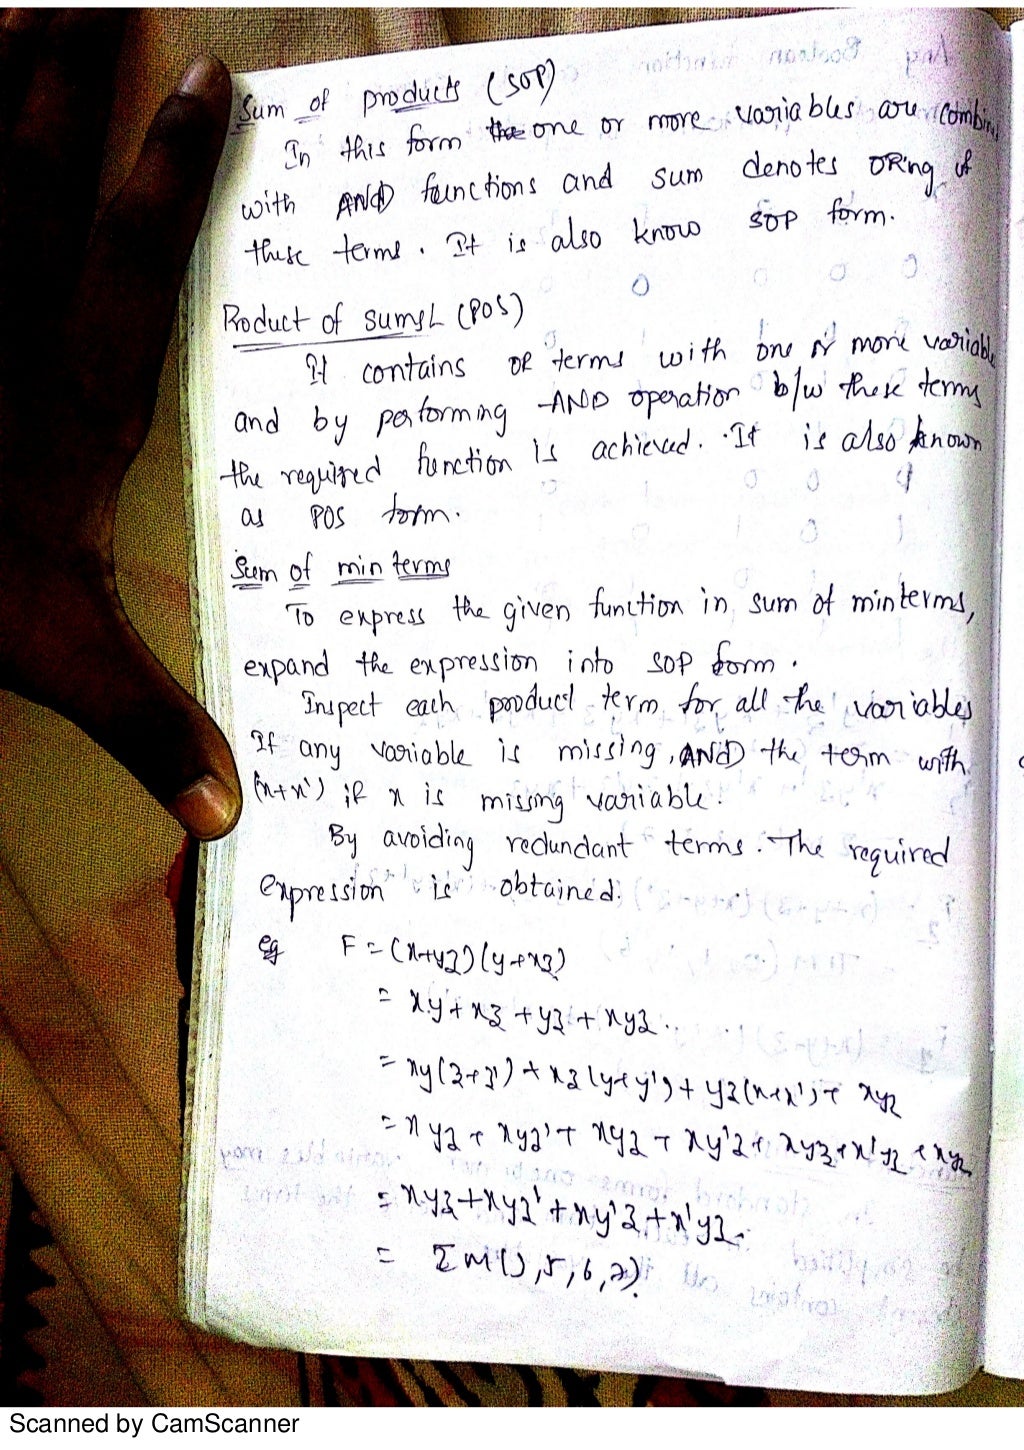 Sum of products (SOP)
In this form one or more variables are combin
with AND functions and sum denotes ORing of
these terms. It is also know SOP form.
Product of sums (POS)
It contains OR terms with one or more variable
and by performing AND operation b/w these terms
the required function is achieved. It is also known
as POS form.
Sum of min terms
To express the given function in sum of minterms,
expand the expression into SOP form.
Inspect each product term for all the variables
If any variable is missing, AND the term with
(x+x') if x is missing variable.
By avoiding redundant terms. The required
expression is obtained.
eg F = (x+yz)(y+xz)
= xy + xz + yz + xyz.
= xy(z+z') + xz(y+y') + yz(x+x') + xyz
= xyz + xyz' + xyz + xy'z + xyz + x'yz + xyz
= xyz + xyz' + xy'z + x'yz.
= Σm( ,5,6,7)
Scanned by CamScanner